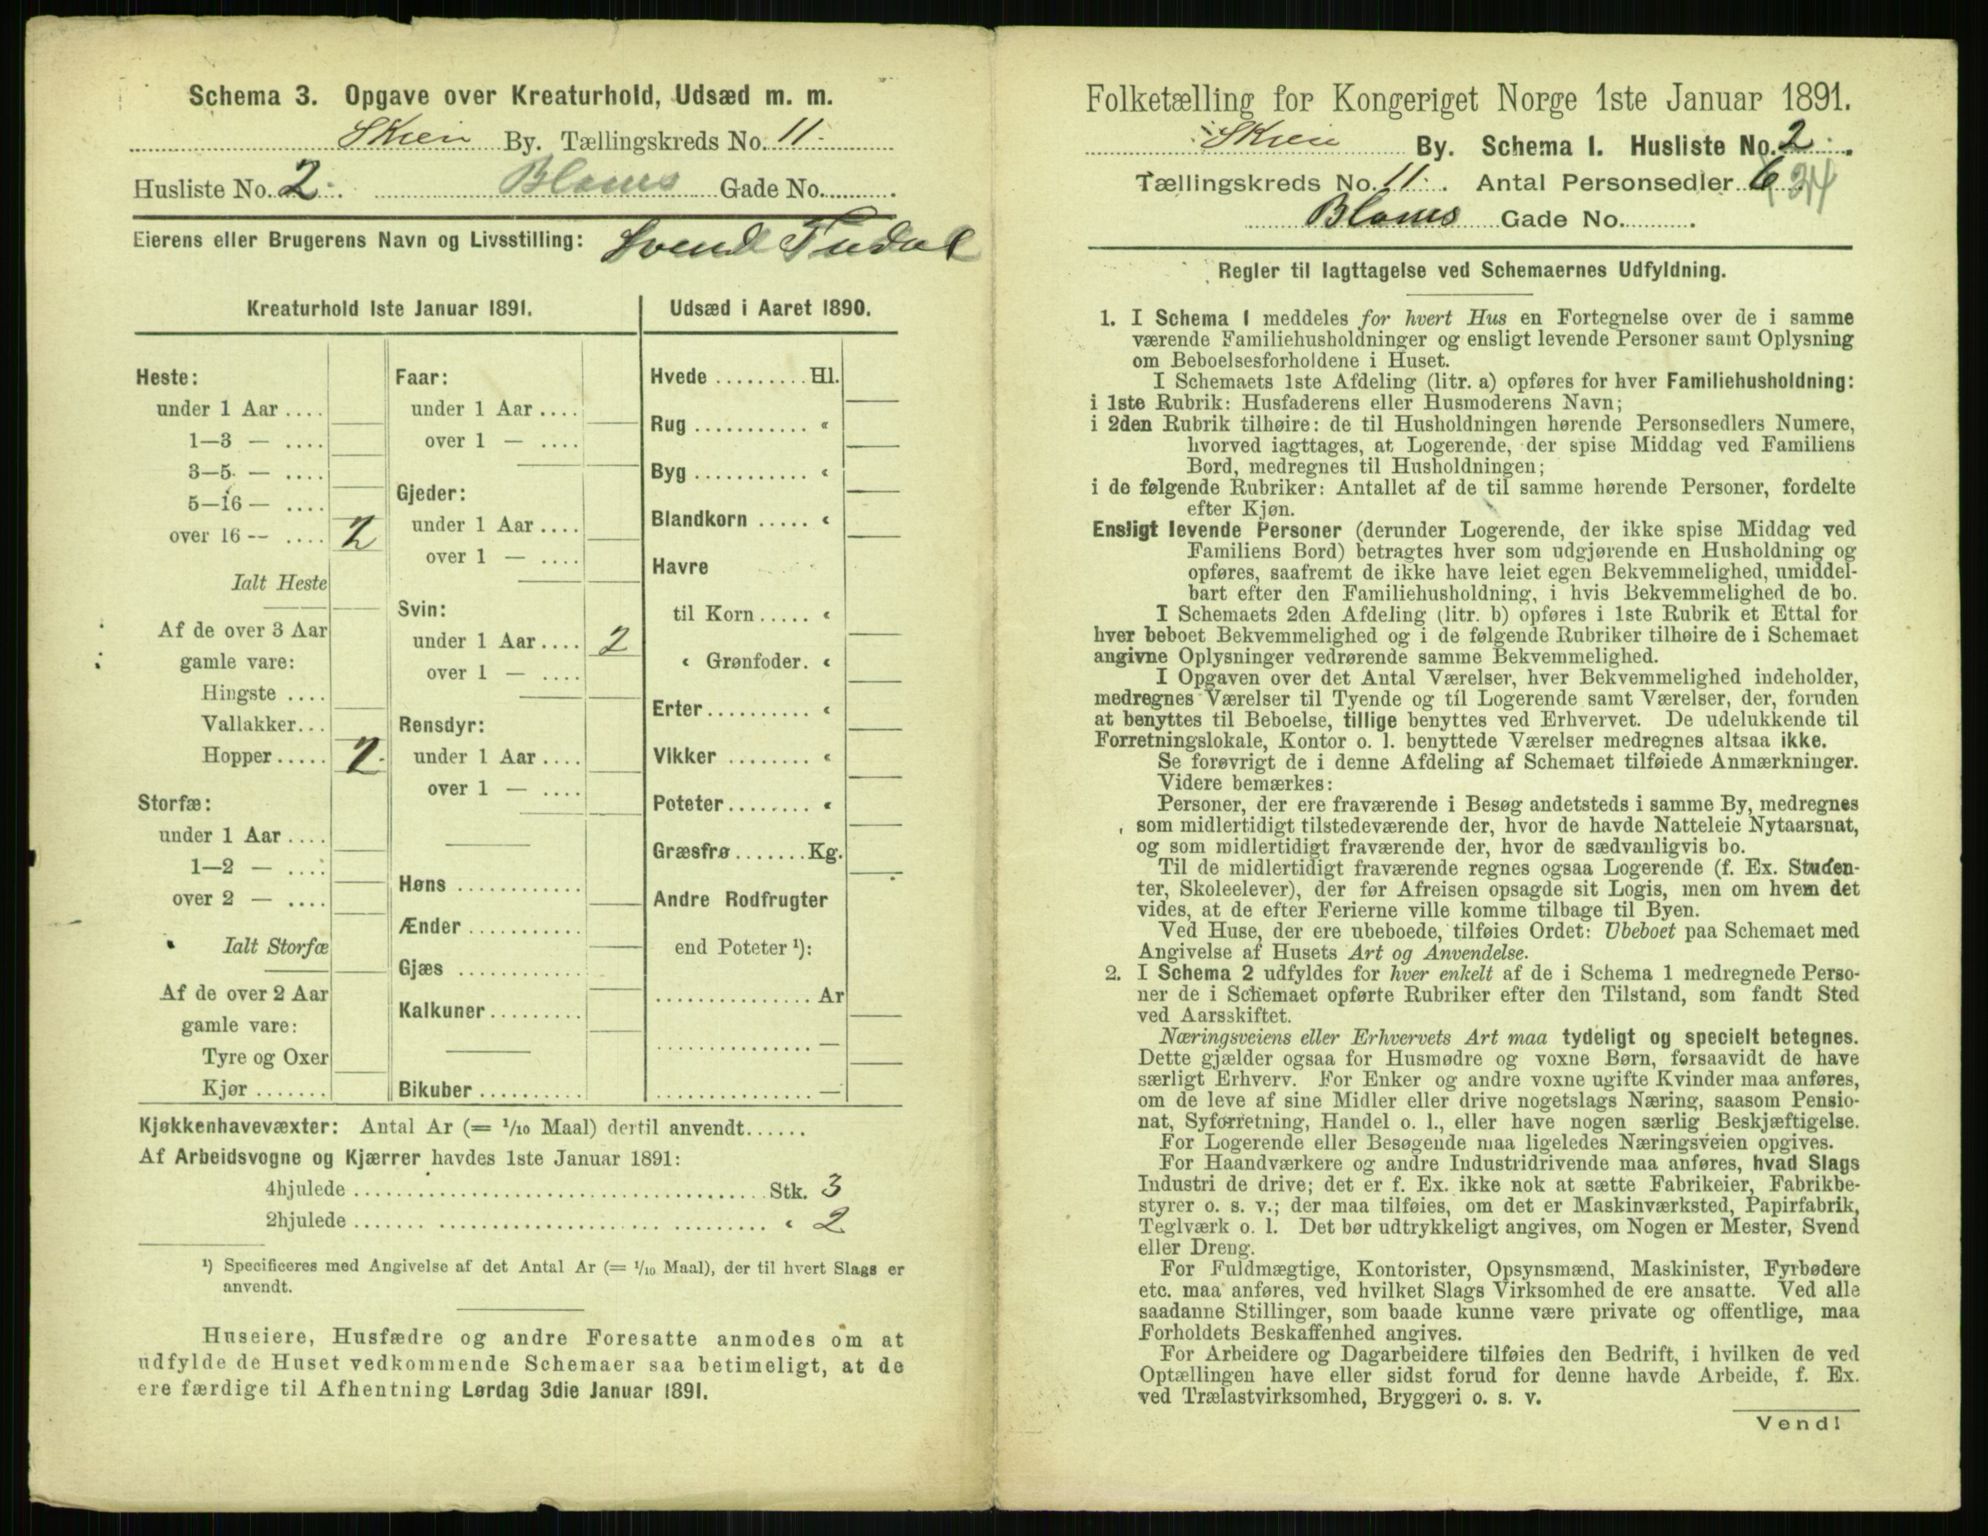 Schema 3. Opgave over Kreaturhold, Udsæd m. m.
Skien By. Tællingskreds No. 11.
Husliste No. 2. Bloms Gade No.
Eierens eller Brugerens Navn og Livsstilling: Svend
Kreaturhold 1ste Januar 1891.
Heste:
under 1 Aar ....
1—3 — ....
3—5 — ....
5—16 — ....
over 16 -- .... 2
Ialt Heste
Af de over 3 Aar
gamle vare:
Hingste ....
Vallakker...
Hopper ..... 2.
Storfæ:
under 1 Aar ....
1—2 — ....
over 2 — ....
Ialt Storfæ
Af de over 2 Aar
gamle vare:
Tyre og Oxer
Kjør .......
Faar:
under 1 Aar ....
over 1 — ....
Gjeder:
under 1 Aar ....
over 1 — ....
Svin:
under 1 Aar .... 2
over 1 — ....
Rensdyr:
under 1 Aar ....
over 1 — ....
Høns ............
Ænder ...........
Gjæs ............
Kalkuner.........
Bikuber ..........
Udsæd i Aaret 1890.
Hvede ......... Hl.
Rug ........... «
Byg ........... «
Blandkorn ..... «
Havre
til Korn ..... «
« Grønfoder. «
Erter .......... «
Vikker ........ «
Poteter ........ «
Græsfrø ....... Kg.
Andre Rodfrugter
end Poteter ¹):
............... Ar
............... —
............... —
Kjøkkenhavevæxter: Antal Ar (= 1/10 Maal) dertil anvendt......
Af Arbeidsvogne og Kjærrer havdes 1ste Januar 1891:
4hjulede ........................................ Stk. 3
2hjulede ........................................ « 2
¹) Specificeres med Angivelse af det Antal Ar (= 1/10 Maal), der til hvert Slags er
anvendt.
Huseiere, Husfædre og andre Foresatte anmodes om at
udfylde de Huset vedkommende Schemaer saa betimeligt, at de
ere færdige til Afhentning Lørdag 3die Januar 1891.
Folketælling for Kongeriget Norge 1ste Januar 1891.
Skien By. Schema 1. Husliste No. 2.
Tællingskreds No. 11. Antal Personsedler 6 34
Bloms Gade No.
Regler til Iagttagelse ved Schemaernes Udfyldning.
1. I Schema 1 meddeles for hvert Hus en Fortegnelse over de i samme
værende Familiehusholdninger og ensligt levende Personer samt Oplysning
om Beboelsesforholdene i Huset.
I Schemaets 1ste Afdeling (litr. a) opføres for hver Familiehusholdning:
i 1ste Rubrik: Husfaderens eller Husmoderens Navn;
i 2den Rubrik tilhøire: de til Husholdningen hørende Personsedlers Numere,
hvorved iagttages, at Logerende, der spise Middag ved Familiens
Bord, medregnes til Husholdningen;
i de følgende Rubriker: Antallet af de til samme hørende Personer, fordelte
efter Kjøn.
Ensligt levende Personer (derunder Logerende, der ikke spise Middag ved
Familiens Bord) betragtes hver som udgjørende en Husholdning og
opføres, saafremt de ikke have leiet egen Bekvemmelighed, umiddel-
bart efter den Familiehusholdning, i hvis Bekvemmelighed de bo.
I Schemaets 2den Afdeling (litr. b) opføres i 1ste Rubrik et Ettal for
hver beboet Bekvemmelighed og i de følgende Rubriker tilhøire de i Schemaet
angivne Oplysninger vedrørende samme Bekvemmelighed.
I Opgaven over det Antal Værelser, hver Bekvemmelighed indeholder,
medregnes Værelser til Tyende og til Logerende samt Værelser, der, foruden
at benyttes til Beboelse, tillige benyttes ved Erhvervet. De udelukkende til
Forretningslokale, Kontor o. l. benyttede Værelser medregnes altsaa ikke.
Se forøvrigt de i denne Afdeling af Schemaet tilføiede Anmærkninger.
Videre bemærkes:
Personer, der ere fraværende i Besøg andetsteds i samme By, medregnes
som midlertidigt tilstedeværende der, hvor de havde Natteleie Nytaarsnat,
og som midlertidigt fraværende der, hvor de sædvanligvis bo.
Til de midlertidigt fraværende regnes ogsaa Logerende (f. Ex. Studen-
ter, Skoleelever), der før Afreisen opsagde sit Logis, men om hvem det
vides, at de efter Ferierne ville komme tilbage til Byen.
Ved Huse, der ere ubeboede, tilføies Ordet: Ubeboet paa Schemaet med
Angivelse af Husets Art og Anvendelse.
2. I Schema 2 udfyldes for hver enkelt af de i Schema 1 medregnede Perso-
ner de i Schemaet opførte Rubriker efter den Tilstand, som fandt Sted
ved Aarsskiftet.
Næringsveiens eller Erhvervets Art maa tydeligt og specielt betegnes.
Dette gjælder ogsaa for Husmødre og voxne Børn, forsaavidt de have
særligt Erhverv. For Enker og andre voxne ugifte Kvinder maa anføres,
om de leve af sine Midler eller drive nogetslags Næring, saasom Pensio-
nat, Syforretning, Handel o. l., eller have nogen særlig Beskjæftigelse.
For Logerende eller Besøgende maa ligeledes Næringsveien opgives.
For Haandværkere og andre Industridrivende maa anføres, hvad Slags
Industri de drive; det er f. Ex. ikke nok at sætte Fabrikeier, Fabrikbe-
styrer o. s. v.; der maa tilføies, om det er Maskinværksted, Papirfabrik,
Teglværk o. l. Det bør udtrykkeligt angives, om Nogen er Mester, Svend
eller Dreng.
For Fuldmægtige, Kontorister, Opsynsmænd, Maskinister, Fyrbødere
etc. maa anføres, ved hvilket Slags Virksomhed de ere ansatte. Ved alle
saadanne Stillinger, som baade kunne være private og offentlige, maa
Forholdets Beskaffenhed angives.
For Arbeidere og Dagarbeidere tilføies den Bedrift, i hvilken de ved
Optællingen have eller sidst forud for denne havde Arbeide, f. Ex.
ved Trælastvirksomhed, Bryggeri o. s. v.
Vend!